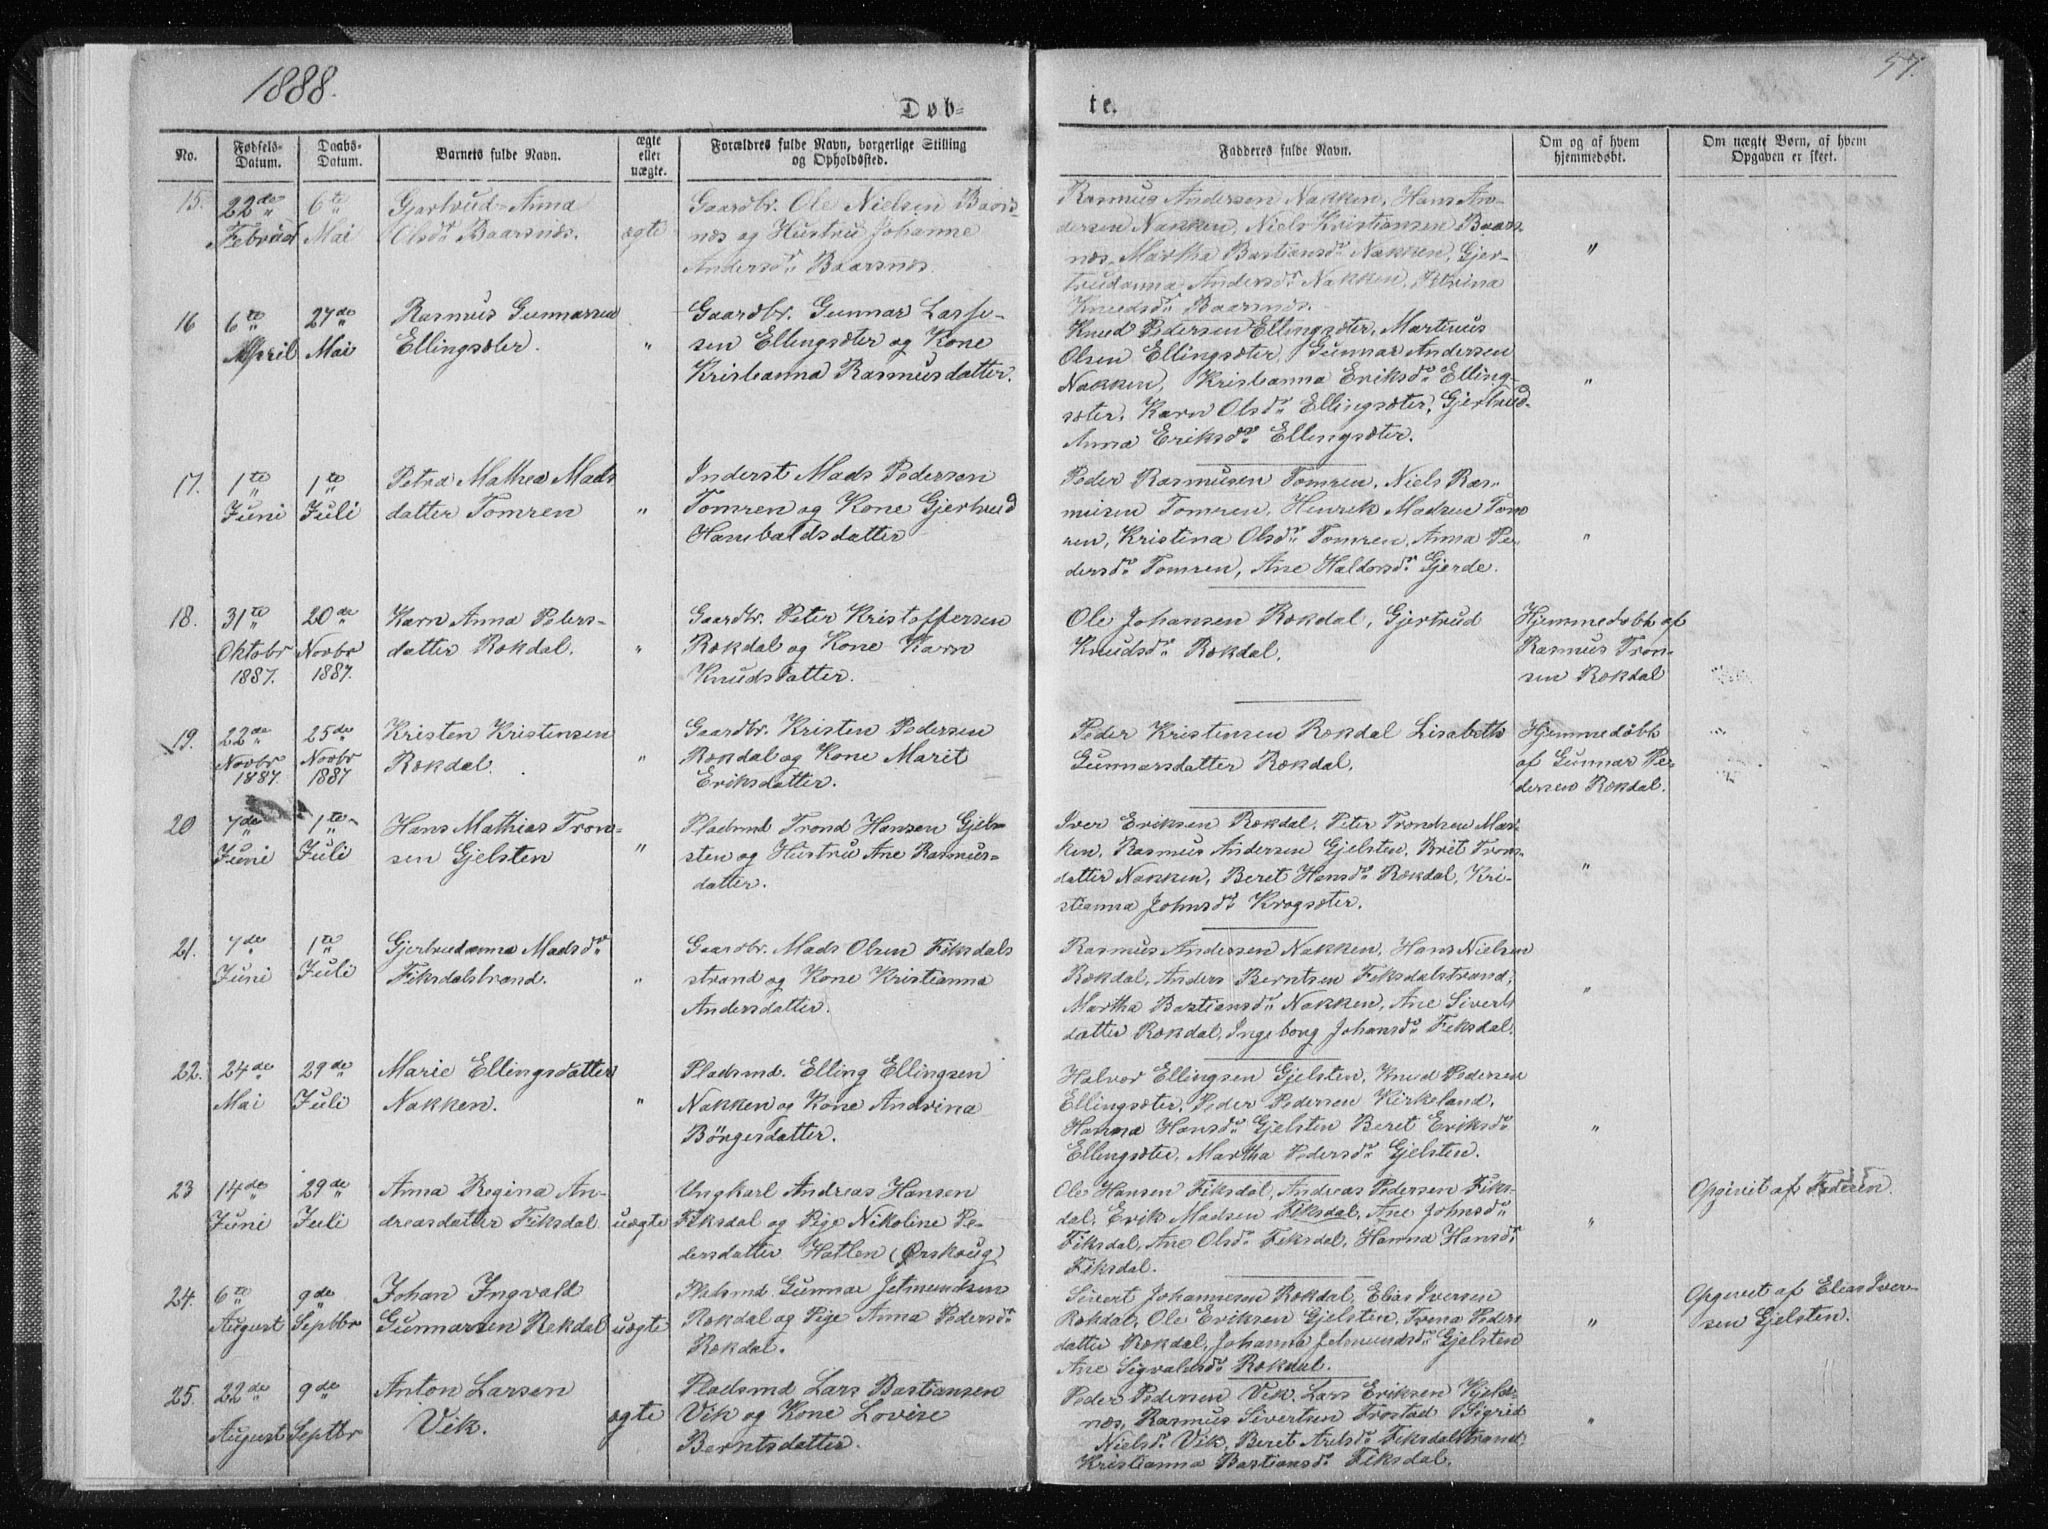 1888.
57.
Døb=
te.
No.
Fødsels-
Datum.
Daabs-
Datum.
Barnets fulde Navn.
ægte
eller
uægte.
Forældres fulde Navn, borgerlige Stilling
og Opholdssted.
Fadderes fulde Navn.
Om og af hvem
hjemmedøbt.
Om uægte Børn, af hvem
Opgaven er skeet.
15.
22de
Februar
6te
Mai
Gjertrud-Anna
Olsdr Baarsnæs.
ægte
Gaardbr. Ole Nielsen Baars-
næs og Hustru Johanne
Andersdr Baarsnæs.
Rasmus Andersen Nakken, Hans An-
dersen Nakken, Niels Kristiansen Baars-
næs, Martha Bastiansdr Nakken, Gjer-
trudanna Andersdr Nakken, Petrina
Knudsdr Baarsnæs.
"
16
6te
April
27de
Mai
Rasmus Gunnarsen
Ellingsæter.
"
Gaardbr. Gunnar Lasse-
sen Ellingsæter og Kone
Kristianna Rasmusdatter.
Knud Pedersen Ellingsæter, Martinus
Olsen Ellingsæter, Gunnar Andersen
Nakken, Kristianna Eriksdr Elling-
sæter, Karn Olsdr Ellingsæter, Gjertrud-
Anna Eriksdr Ellingsæter.
"
17.
1te
Juni
1te
Juli
Petra Mathea Mads
datter Tomren
"
Inderst Mads Pedersen
Tomren og Kone Gjertrud
Hanibaldsdatter
Peder Rasmusen Tomren, Niels Ras-
musen Tomren, Henrik Madsen Tom
ren, Kristina Olsdr Tomren, Anna Pe-
dersdr Tomren, Ane Haldorsdr Gjerde.
"
18.
31te
Oktobr
1887.
20de
Novbr
1887.
Karn Anna Peters-
datter Rekdal.
"
Gaardbr. Peter Kristoffersen
Rekdal og Kone Karn
Knudsdatter.
Ole Johansen Rekdal, Gjertrud
Knudsdr Rekdal.
Hjemmedøbt af
Rasmus Tron-
sen Rekdal
19.
22de
Novbr
1887.
25de
Novbr
1887
Kristen Kristensen
Rekdal.
"
Gaardbr. Kristen Pedersen
Rekdal og Kone Marit
Eriksdatter.
Peder Kristensen Rekdal Lisabeth
Gunnarsdatter Rekdal.
Hjemmedøbt
af Gunnar Pe-
dersen Rekdal.
20
7de
Juni
1te
Juli
Hans Mathias Tron-
sen Gjelsten
"
Pladsmd Trond Hansen Gjel-
sten og Hustru Ane Rasmus-
datter.
Iver Eriksen Rekdal, Peter Trondsen Nak-
ken, Rasmus Andersen Gjelsten, Brit Trons-
datter Nakken, Beret Hansdr Rekdal, Kri-
stianna Johnsdr Krogsæter.
"
21.
7de
Juni
1te
Juli
Gjertrudanna Madsdr
Fiksdalstrand.
"
Gaardbr. Mads Olsen Fiksdals
strand og Kone Kristianna
Andersdatter.
Rasmus Andersen Nakken, Hans Nielsen
Rekdal, Anders Berntsen Fiksdalstrand,
Martha Bastiansdr Nakken, Ane Siverts
datter Rekdal, Ingeborg Johansdr Fiksdal.
"
22.
24de
Mai
29de
Juli
Marie Ellingsdatter
Nakken.
"
Pladsmd. Elling Ellingsen
Nakken og Kone Andrina
Börgesdatter.
Halvor Ellingsen Gjelsten, Knud Pedersen
Ellingsæter, Peder Pedersen Kirkeland,
Hanna Hansdr Gjelsten Beret Eriksdr
Ellingsæter, Martha Pedersdr Gjelsten.
"
23
14de
Juni
29de
Juli
Anna Regina An-
dreasdatter Fiksdal
uægte
Ungkarl Andreas Hansen
Fiksdal og Pige Nikoline Pe-
dersdatter Hatlen (Ørskoug)
Ole Hansen Fiksdal, Andreas Pedersen Fiks-
dal, Erik Madsen Fiksdal, Ane Johnsdr
Fiksdal, Ane Olsdr Fiksdal, Hanna Hansdr
Fiksdal.
"
Opgivet af Faderen.
24.
6te
August
9de
Septbr
Johan Ingvald
Gunnarsen Rekdal
uægte
Pladsmd. Gunnar Jetmundsen
Rekdal og Pige Anna Pedersdr
Rekdal.
Sivert Johannesen Rekdal, Elias Iversen
Rekdal, Ole Eriksen Gjelsten, Trena Peders
datter Rekdal, Johanna Jetmundsdr Gjelsten
Ane Sigvaldsdr Rekdal.
"
Opgivet af Elias Iver-
sen Gjelsten.
25.
22de
August
9de
Septbr
Anton Larsen
Vik.
ægte
Pladsmd Lars Bastiansen
Vik og Kone Lovise
Berntsdatter.
Peder Pedersen Vik, Lars Eriksen Kjelds-
næs, Rasmus Sivertsen Frostad Sigrid
Nielsdr Vik, Beret Axelsdr Fiksdalstrand,
Kristianna Bastiansdr Fiksdal.
"